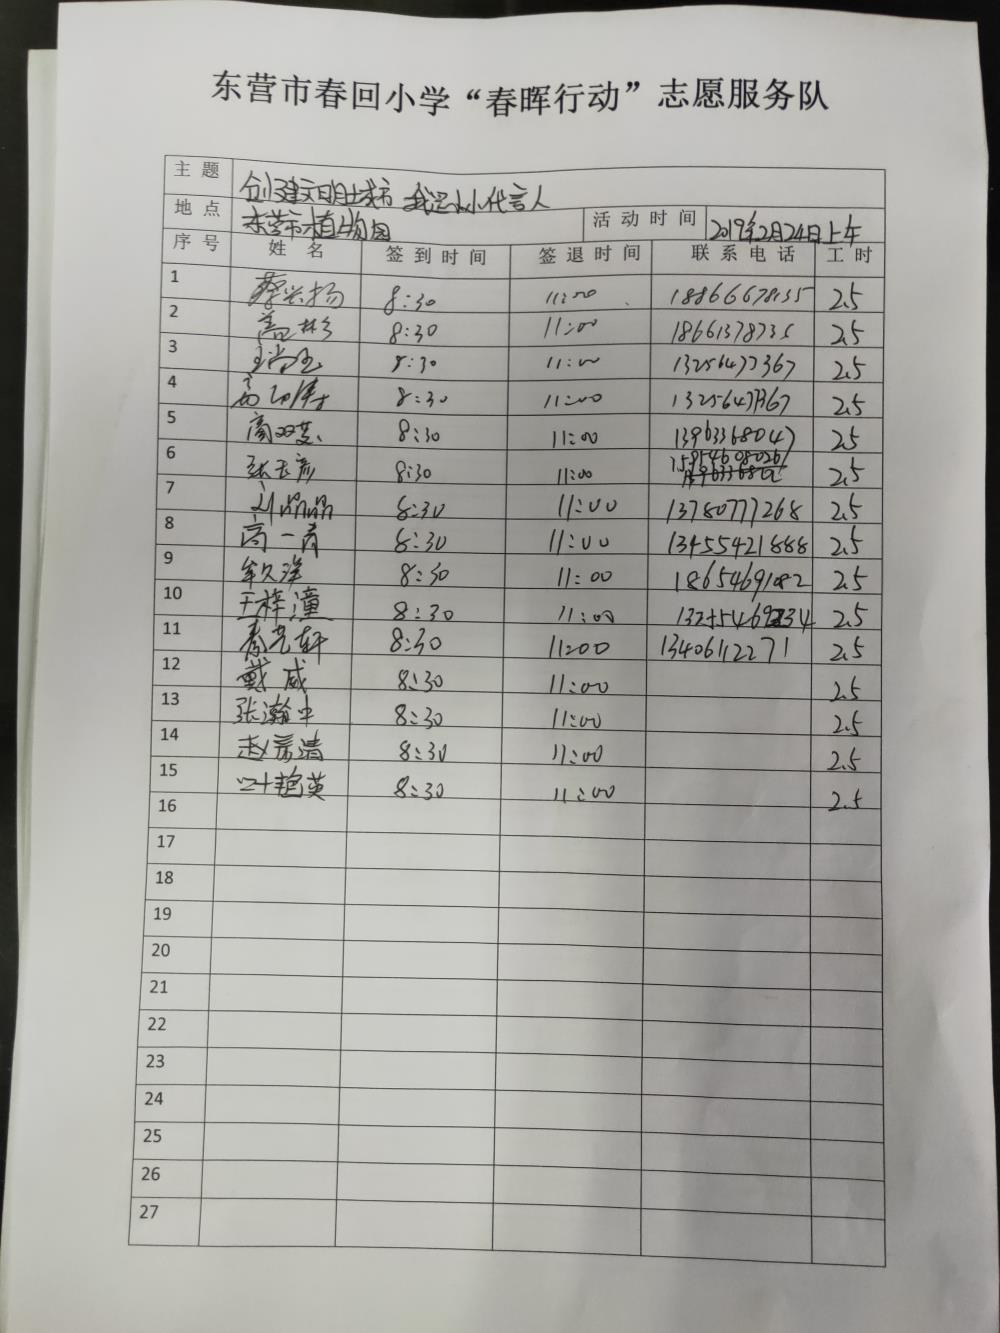 东营市春回小学“春晖行动”志愿服务队
主 题 创建文明城市 我是小小代言人
地 点 东营市植物园 活动时间 2019年2月24日上午
序号 姓 名 签到时间 签退时间 联系电话 工时
1 蔡兴扬 8:30 11:00 18866678135 2.5
2 高彬 8:30 11:00 18661378735 2.5
3 8:30 11:00 13256477367 2.5
4 8:30 11:00 13256477367 2.5
5 8:30 11:00 13963368047 2.5
6 张玉彦 8:30 11:00 15954608026 2.5
7 刘晶晶 8:30 11:00 13780777268 2.5
8 高一森 8:30 11:00 13455421888 2.5
9 牟久洋 8:30 11:00 18654691082 2.5
10 王梓潼 8:30 11:00 2.5
11 8:30 11:00 13406112271 2.5
12 戴威 8:30 11:00 2.5
13 张瀚中 8:30 11:00 2.5
14 8:30 11:00 2.5
15 叶艳英 8:30 11:00 2.5
16
17
18
19
20
21
22
23
24
25
26
27